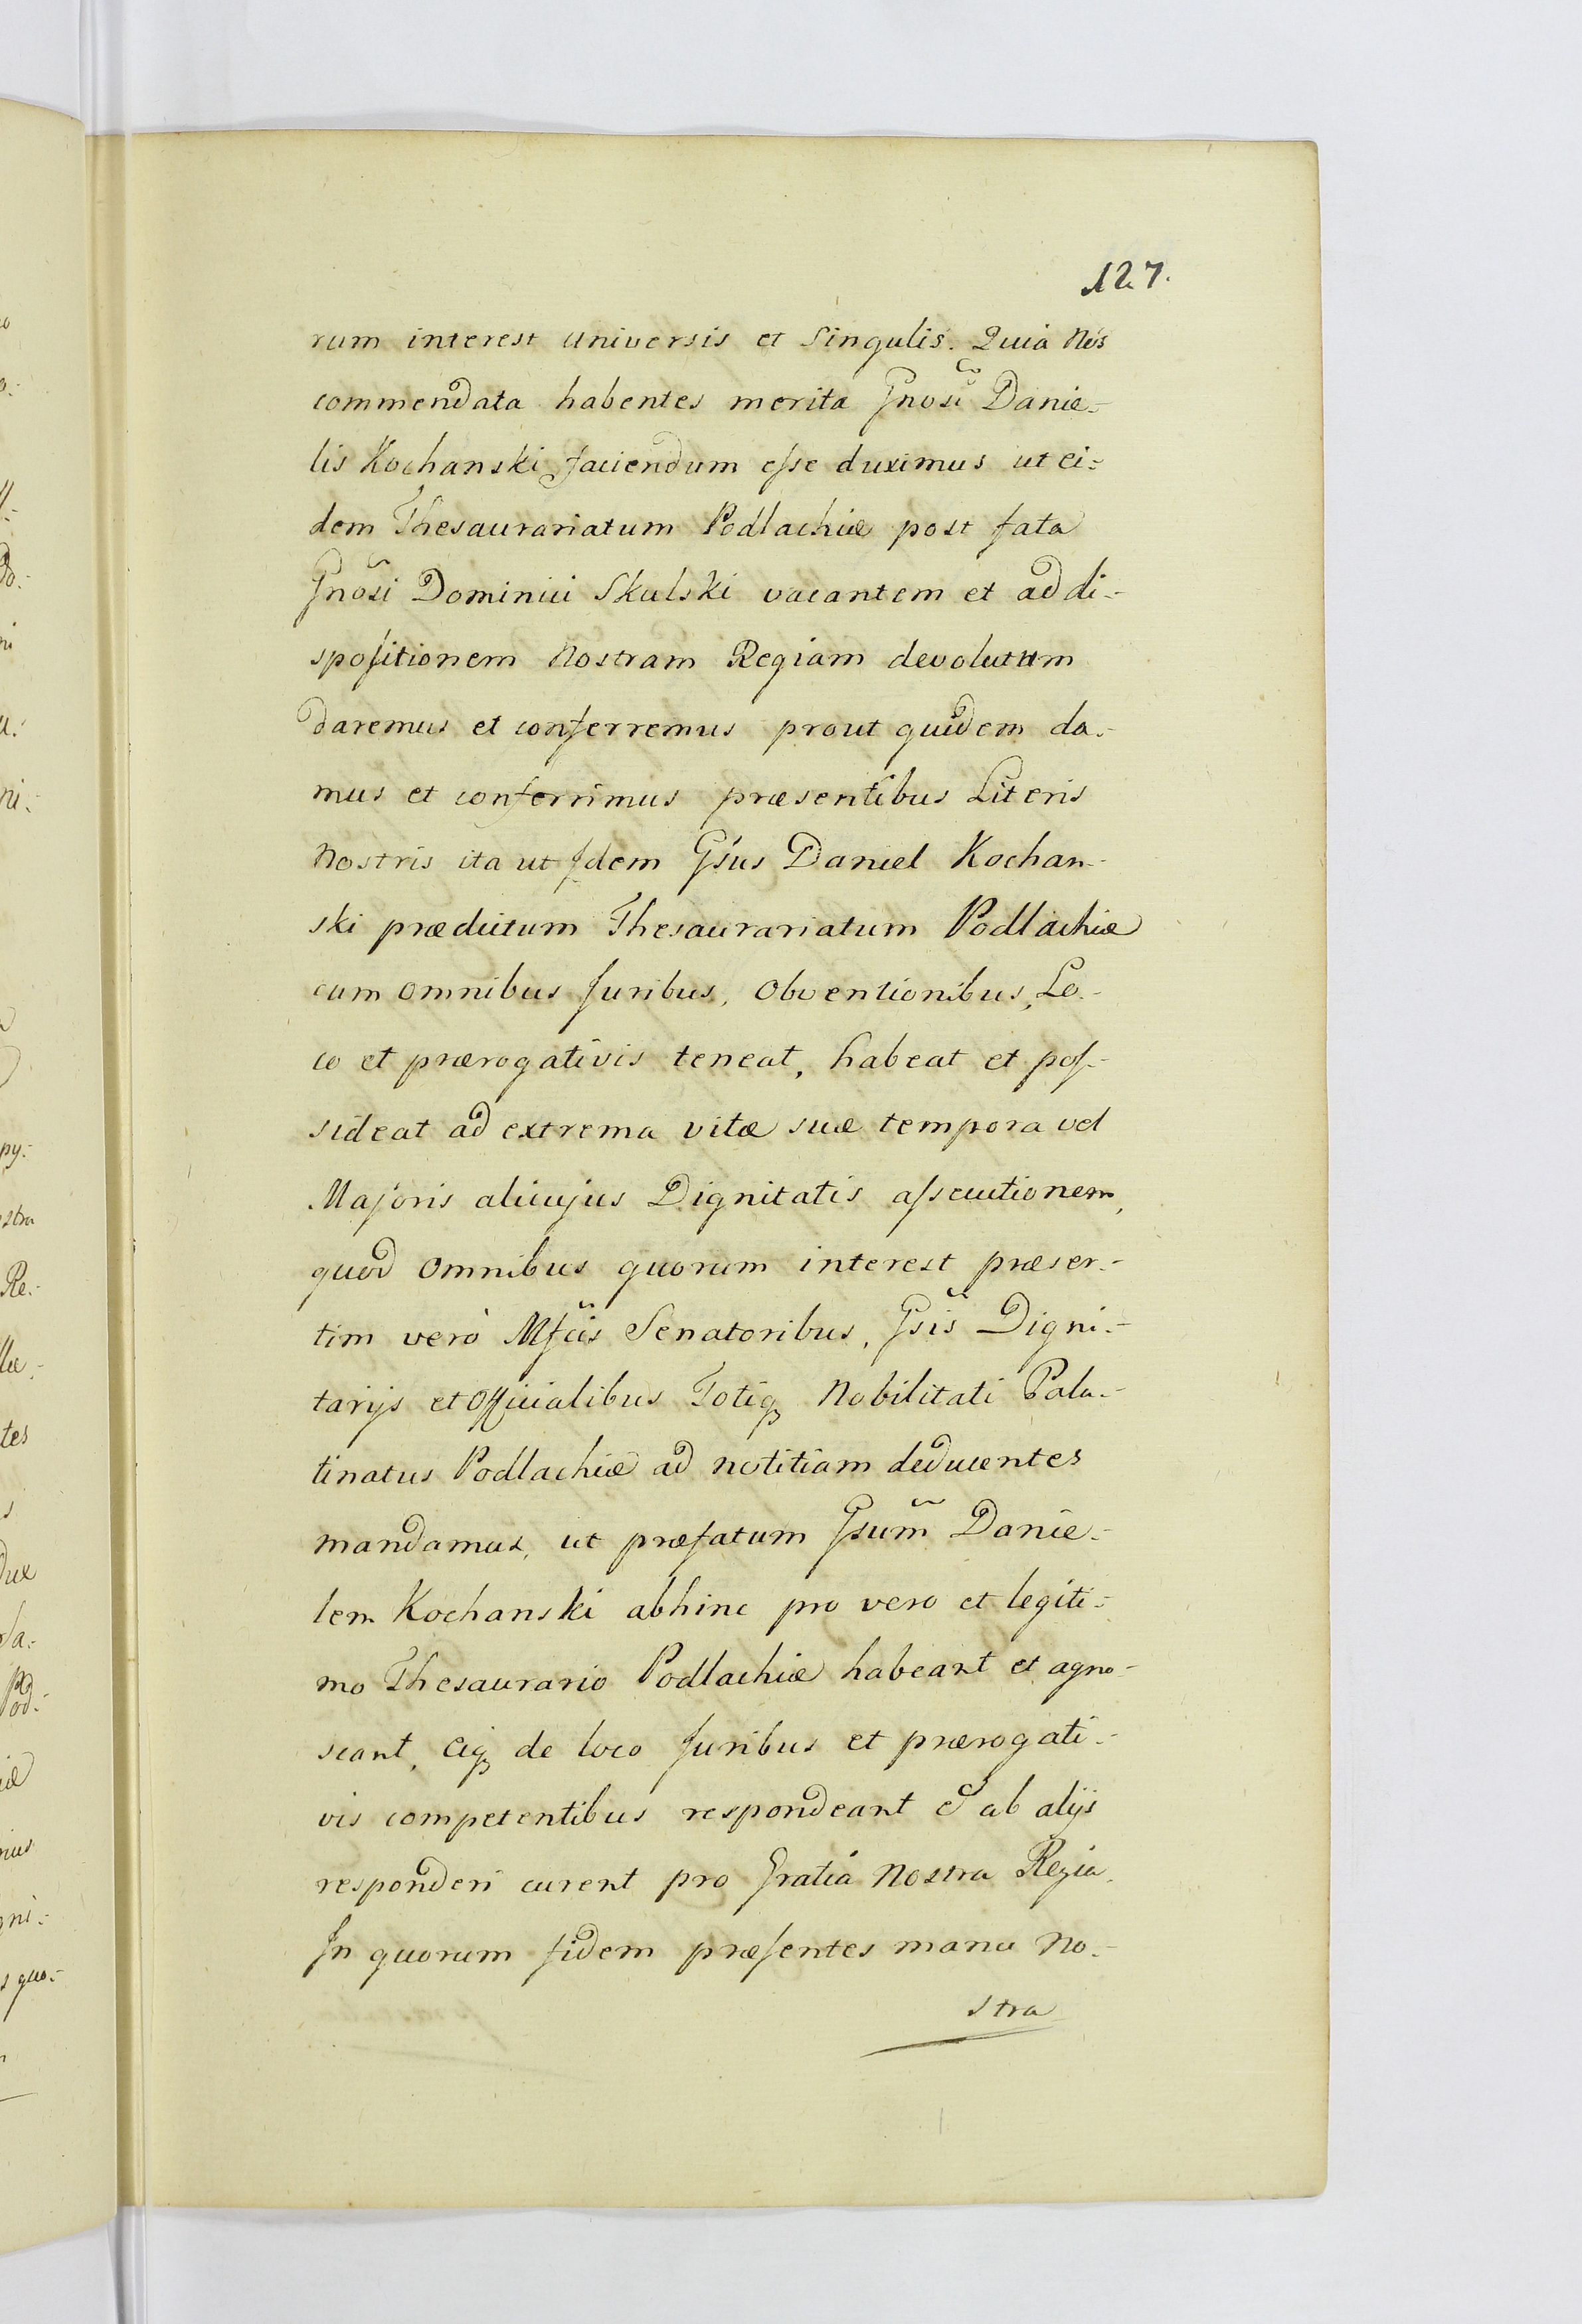 127.
rum interest universis et Singulis. Quia Nos
commendata habentes merita Gnosi Danie-
lis Kochanski faciendum esse duximus ut ei-
dem Thesaurariatum Podlachiæ post fata
Gnosi Dominici Skulski vacantem et ad di-
spositionem Nostram Regiam devolutum
daremus et conferremus prout quidem da-
mus et conferrimus præsentibus Literis
Nostris ita ut Idem Gsus Daniel Kochan-
ski prædictum Thesaurariatum Podlachiæ
cum omnibus Juribus, Obventionibus, Lo-
co et prærogativis teneat, habeat et pos-
sideat ad extrema vitæ suæ tempora vel
Majoris alicujus Dignitatis assecutionem,
quod Omnibus quorum interest præser-
tim verò Mfcis Senatoribus, Gsis Digni-
tarijs et Officialibus Totiq3 Nobilitati Pala-
tinatus Podlachiæ ad notitiam deducentes
mandamus, ut præfatum Gsum Danie-
lem Kochanski abhinc pro vero et legiti-
mo Thesaurario Podlachiæ habeant et agno-
scant, eiq3 de loco Juribus et prærogati-
vis competentibus respondeant & ab alijs
responderi curent pro Gratia Nostra Regia.
In quorum fidem præsentes manu No-
stra